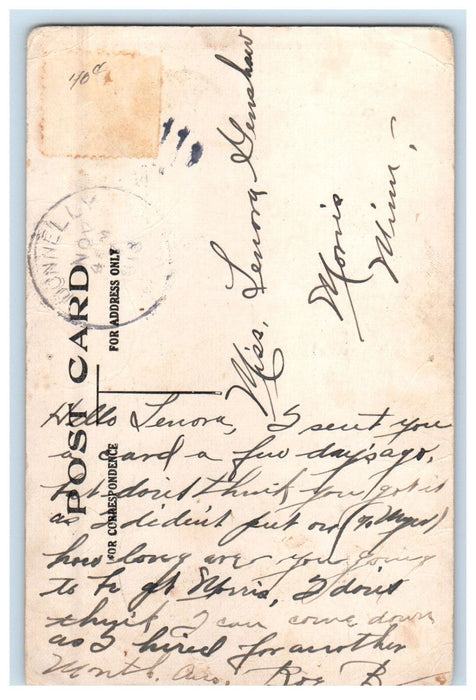 40¢
DONNELLY
NOV
POST CARD
FOR ADDRESS ONLY
FOR CORRESPONDENCE
Miss, Lenora Genshaw
Morris
Minn,
Hello Lenora, I sent you
a card a few day's ago,
but don't think you got it
as I did'nt put on
how long are you going
to be at Morris, I don't
think I can come down
as I hired for another
Month. Roy B